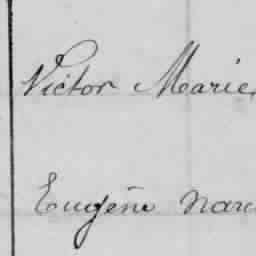 Victor Marie
Eugène Narc